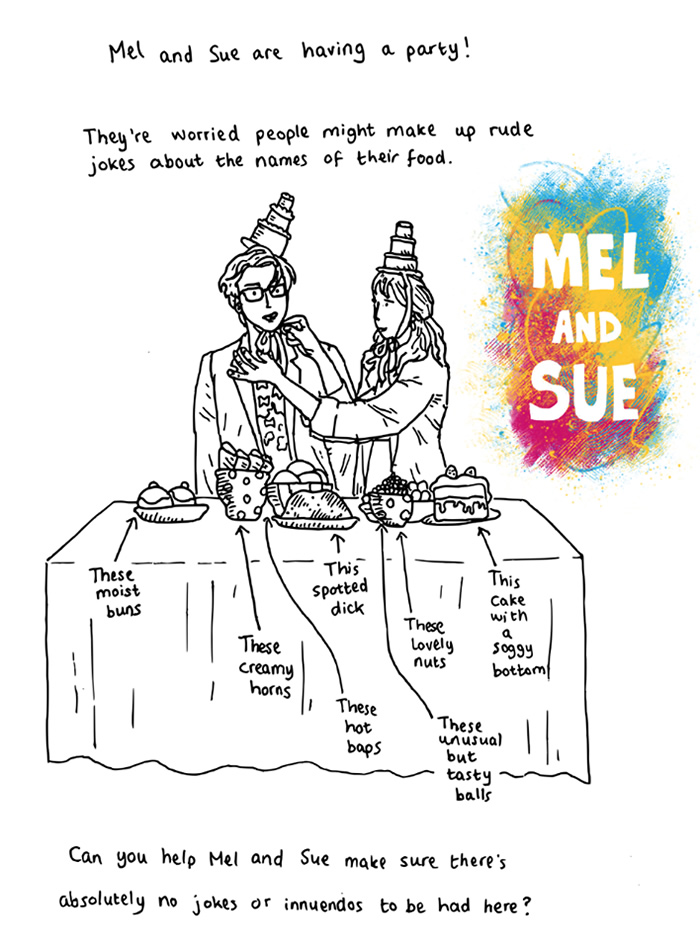 Mel and Sue are having a party!
They're worried people might make up rude
jokes about the names of their food.
MEL
AND
SUE
These
moist
buns
These
creamy
horns
These
hot
baps
This
spotted
dick
These
lovely
nuts
These
unusual
but
tasty
balls
This
cake
with
a
soggy
bottom
Can you help Mel and Sue make sure there's
absolutely no jokes or innuendos to be had here?